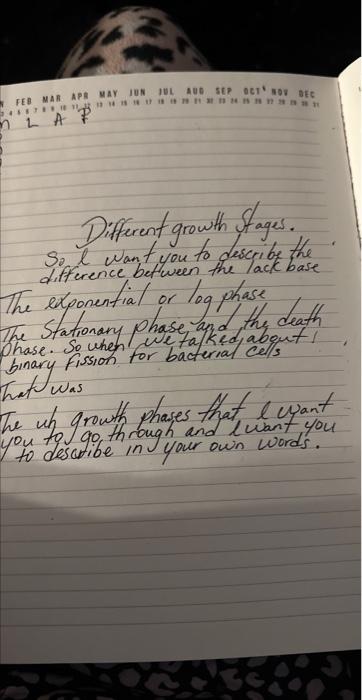 FEB MAR APR MAY JUN JUL AUG SEP OCT NOV DEC
L A P
Different growth stages.
So I want you to describe the
difference between the lack base
The exponential or log phase
The Stationary phase, and the death
phase. So when we talked about
binary fission for bacterial cells
That was
The uh growth phases that I want
you to go through and I want you
to describe in your own words.